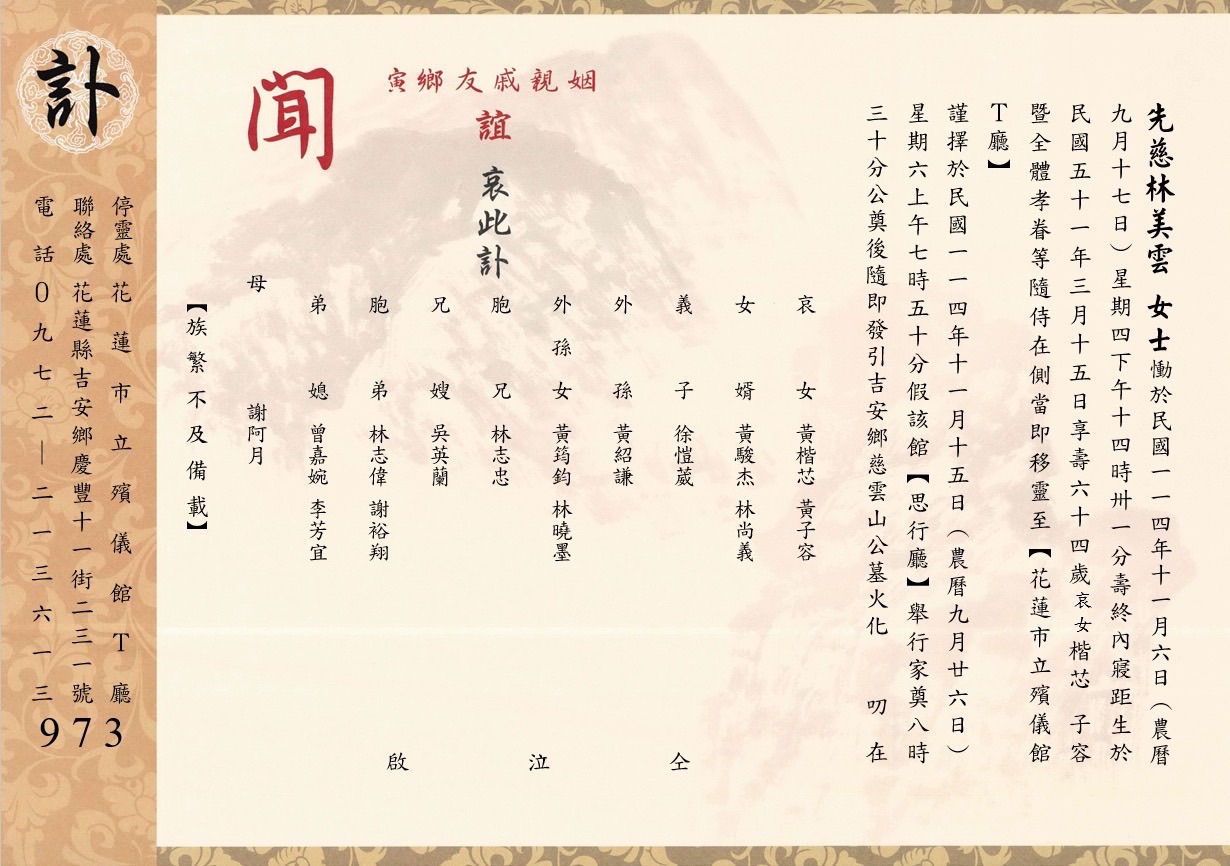 先慈林美雲 女士慟於民國一一四年十一月六日（農曆
九月十七日）星期四下午十四時卅一分壽終內寢距生於
民國五十一年三月十五日享壽六十四歲哀女楷芯 子容
暨全體孝眷等隨侍在側當即移靈至【花蓮市立殯儀館
T廳】
謹擇於民國一一四年十一月十五日（農曆九月廿六日）
星期六上午七時五十分假該館【思行廳】舉行家奠八時
三十分公奠後隨即發引吉安鄉慈雲山公墓火化 叨 在
寅鄉友戚親姻
誼
哀此訃
聞
哀女 黃楷芯 黃子容
女婿 黃駿杰 林尚義
義子 徐愷葳
外孫 黃紹謙
外孫女 黃筠鈞 林曉墨
胞兄 林志忠
兄嫂 吳英蘭
胞弟 林志偉 謝裕翔
弟媳 曾嘉婉 李芳宜
母 謝阿月
【族繁不及備載】
仝 泣 啟
訃
停靈處 花蓮市立殯儀館T廳
聯絡處 花蓮縣吉安鄉慶豐十一街二三一號
電話 0九七二—二一三六一三
973